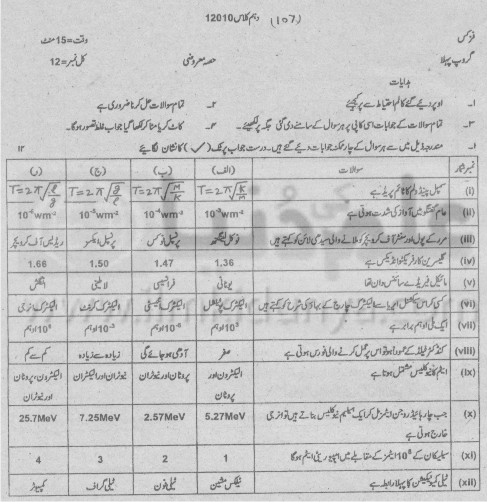 (107) دہم کلاس 12010
فزکس وقت=15 منٹ
گروپ پہلا حصہ معروضی کل نمبر=12
ہدایات
۱۔ اوپر دیے گئے کالم احتیاط سے پر کیجئے ۲۔ تمام سوالات حل کرنا ضروری ہے
۳۔ تمام سوالات کے جوابات اسی کاپی پر ہر سوال کے سامنے دی گئی جگہ پر لکھیئے ۴۔ کاٹ کر یا مٹا کر لکھا گیا جواب غلط تصور ہوگا۔
۱۔ مندرجہ ذیل میں سے ہر سوال کے چار ممکنہ جوابات دیے گئے ہیں۔ درست جواب پر ٹک (✓) کا نشان لگائیے ۱۲
نمبر شمار سوالات (الف) (ب) (ج) (د)
(i) سمپل پنڈولم کا ٹائم پیریڈ ہے T=2π√K/M T=2π√M/K T=2π√g/ℓ T=2π√ℓ/g
(ii) عام گفتگو میں آواز کی شدت ہوتی ہے
(iii) مرر کے پول اور سنٹر آف کرویچر کو ملانے والی سیدھی لائن کو کہتے ہیں فوکل لینگتھ پرنسپل فوکس پرنسپل ایکسز ریڈیس آف کرویچر
(iv) گلیسرین کا رفریکٹو انڈیکس ہے 1.36 1.47 1.50 1.66
(v) مائیکل فیریڈے سائنس دان تھا یونانی فرانسیسی لاطینی انگلش
(vi) کسی کراس سیکشنل ایریا سے الیکٹرک چارج کے بہاؤ کی شرح کو کہتے ہیں الیکٹرک پوٹینشل الیکٹرک کرنٹ الیکٹرک انرجی
(vii) ایک کلو اوہم برابر ہے
(viii) کنڈکٹر فیلڈ کے عموداً ہو تو اس پر عمل کرنے والی فورس ہوتی ہے صفر آدھی ہو جائے گی زیادہ سے زیادہ کم سے کم
(ix) ایٹم کا نیوکلیس مشتمل ہوتا ہے الیکٹرون اور پروٹان پروٹان اور نیوٹران نیوٹران اور الیکٹران الیکٹرون، پروٹان اور نیوٹران
(x) جب چار ہائیڈروجن ایٹمز مل کر ایک ہیلیم نیوکلیس بناتے ہیں تو انرجی خارج ہوتی ہے 5.27MeV 2.57MeV 7.25MeV 25.7MeV
(xi) سیلیکان کے 10⁶ ایٹمز کے مقابلے میں امپیورٹی ایٹم ہوگا 1 2 3 4
(xii) ٹیلی کمیونیکیشن کا پہلا رابطہ ہے فیکس مشین ٹیلی فون ٹیلی گراف کمپیوٹر